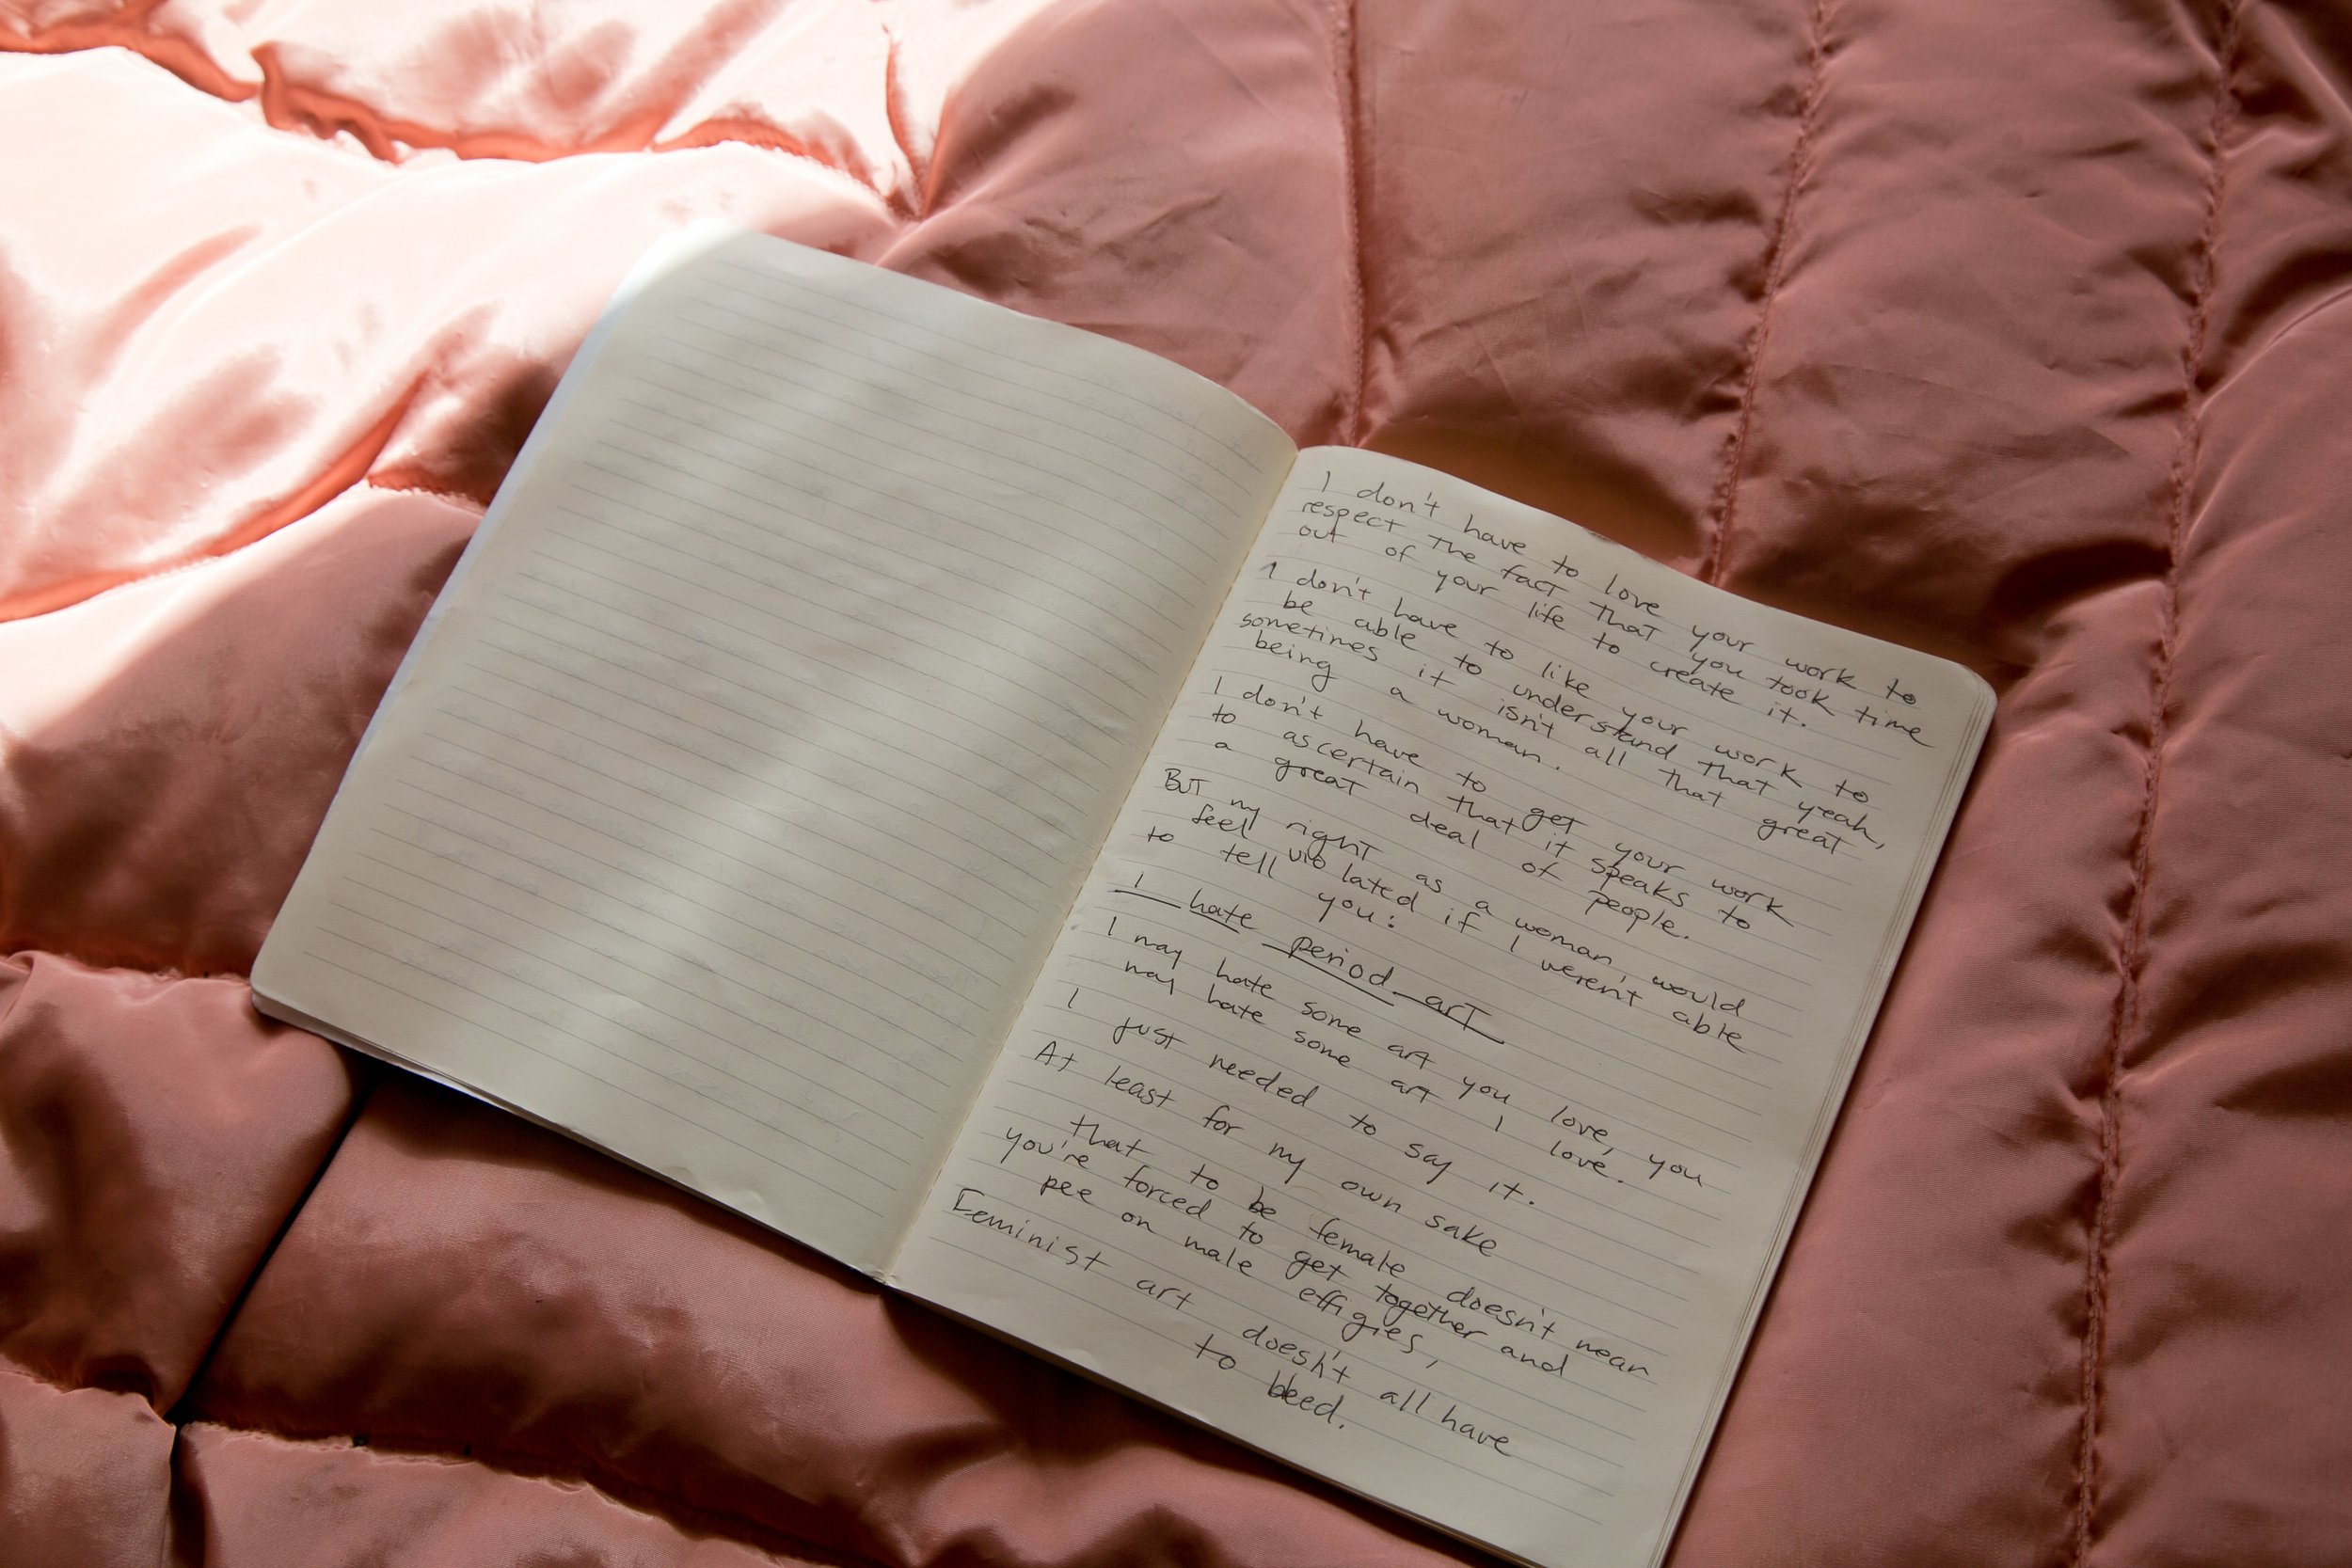 I don't have to love your work to
respect the fact that you took time
out of your life to create it.
I don't have to like your work to
be able to understand that yeah,
sometimes it isn't all that great
being a woman.
I don't have to get your work
to ascertain that it speaks to
a great deal of people.
But my right as a woman, would
feel violated if I weren't able
to tell you:
I hate period art
I may hate some art you love, you
may hate some art I love.
I just needed to say it.
At least for my own sake
that to be female doesn't mean
you're forced to get together and
pee on male effigies,
Feminist art doesn't all have
to bleed.